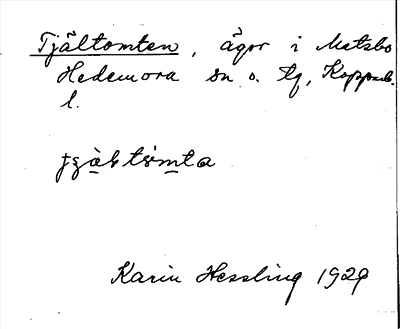 Tjältomten, ägor i Matsbo
Hedemora sn o. tg, Kopparb.
l.
Karin Hessling 1929